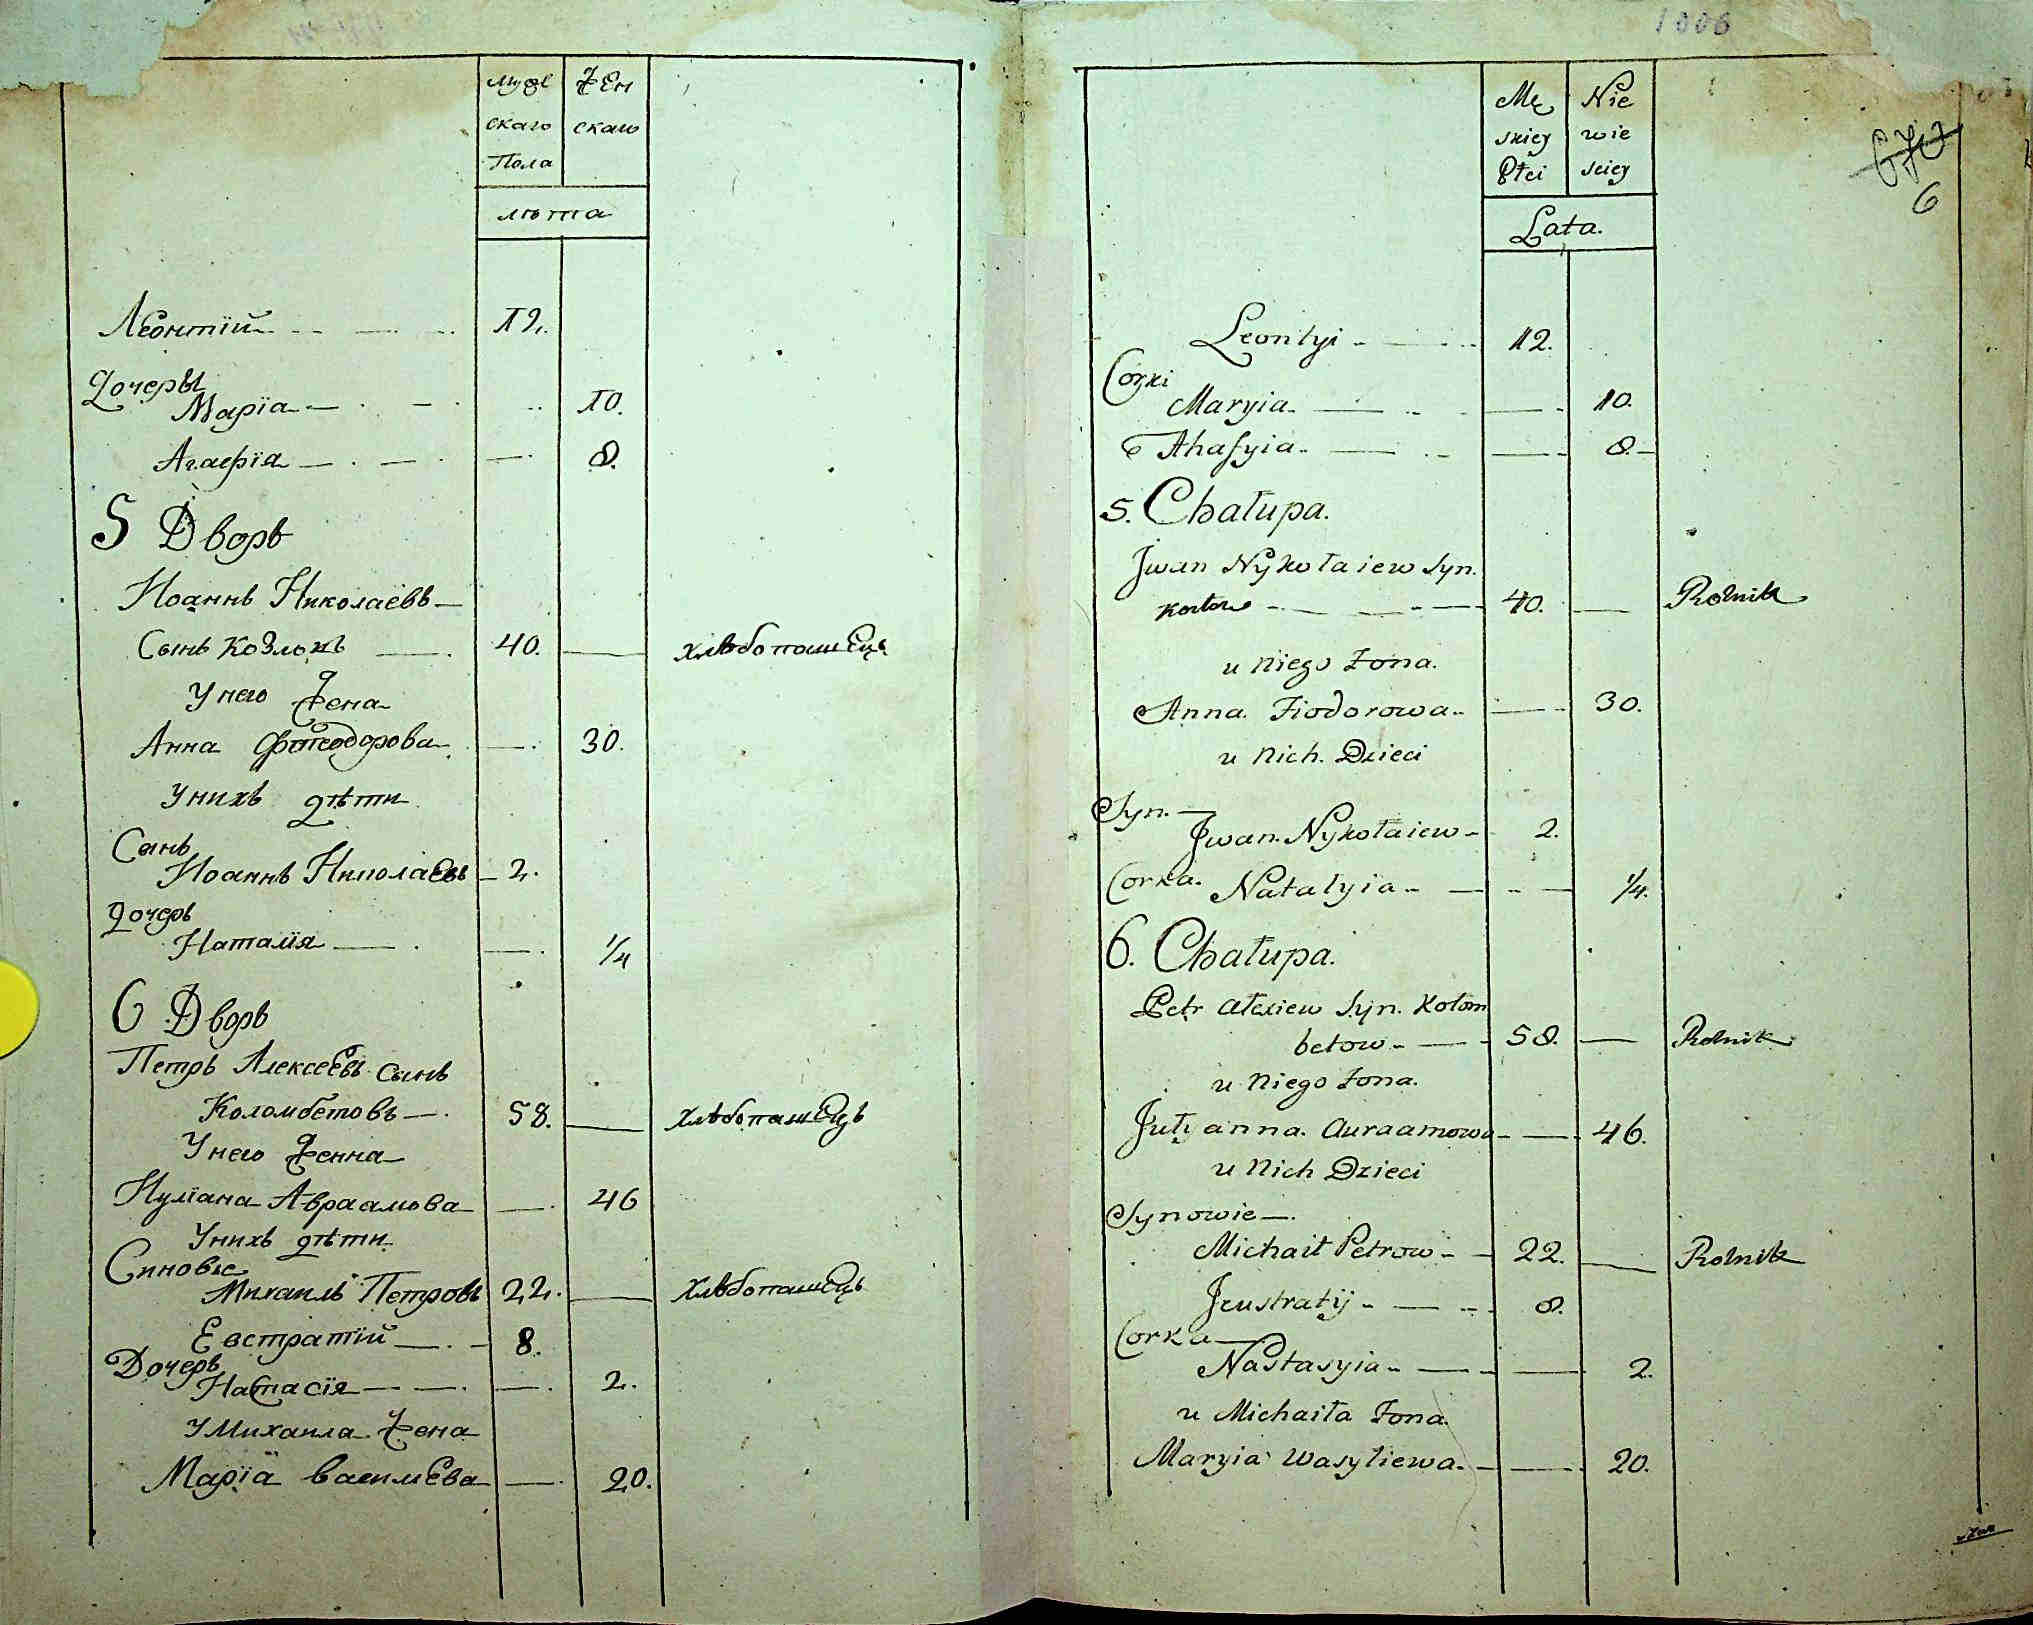 муже
скаго
Пола
жен
скаго
лѣта
Леонтїй 12.
Дочеры
Марїа 10.
Агафїя 8.
5 Дворъ
Иоаннъ Николаевъ
Сынъ Козлокъ 40. хлѣбопашецъ
Унего жена
Анна Фтеодорова 30.
Унихъ дѣти
Сынъ
Иоаннъ Николаевъ 2.
Дочерь
Наталїя 1/4
6 Дворъ
Петръ Алексеевъ сынъ
Коломбетовъ 58. хлѣбопашецъ
Унего женна
Иулїана Авраамова 46
Унихъ дѣти
Синовъе
Михаилъ Петровъ 22. хлѣбопашецъ
Евстратїй 8.
Дочерь
Настасїя 2.
У Михаила жена
Марїя василева 20.
1006
Mę
skiey
Płci
Nie
wie
sciey
Lata.
670
6
Leontyi 12.
Corki
Maryia 10.
Ahafyia 8.
5. Chałupa.
Jwan Nykołaiew syn.
40. Rolnik
u Niego Zona.
Anna Fiodorowa 30.
u Nich. Dzieci
Syn.
Jwan Nykołaiew 2.
Corka. Natałyia 1/4.
6. Chałupa.
Petr Alexiew Syn. Kołom
betow 58. Rolnik
u Niego Zona.
Jułyanna. Auraamowa 46.
u Nich Dzieci
Synowie
Michaił Petrow 22. Rolnik
Jeustratij 8.
Corka
Nastasyia 2.
u Michaiła Zona.
Maryia Wasyliewa 20.